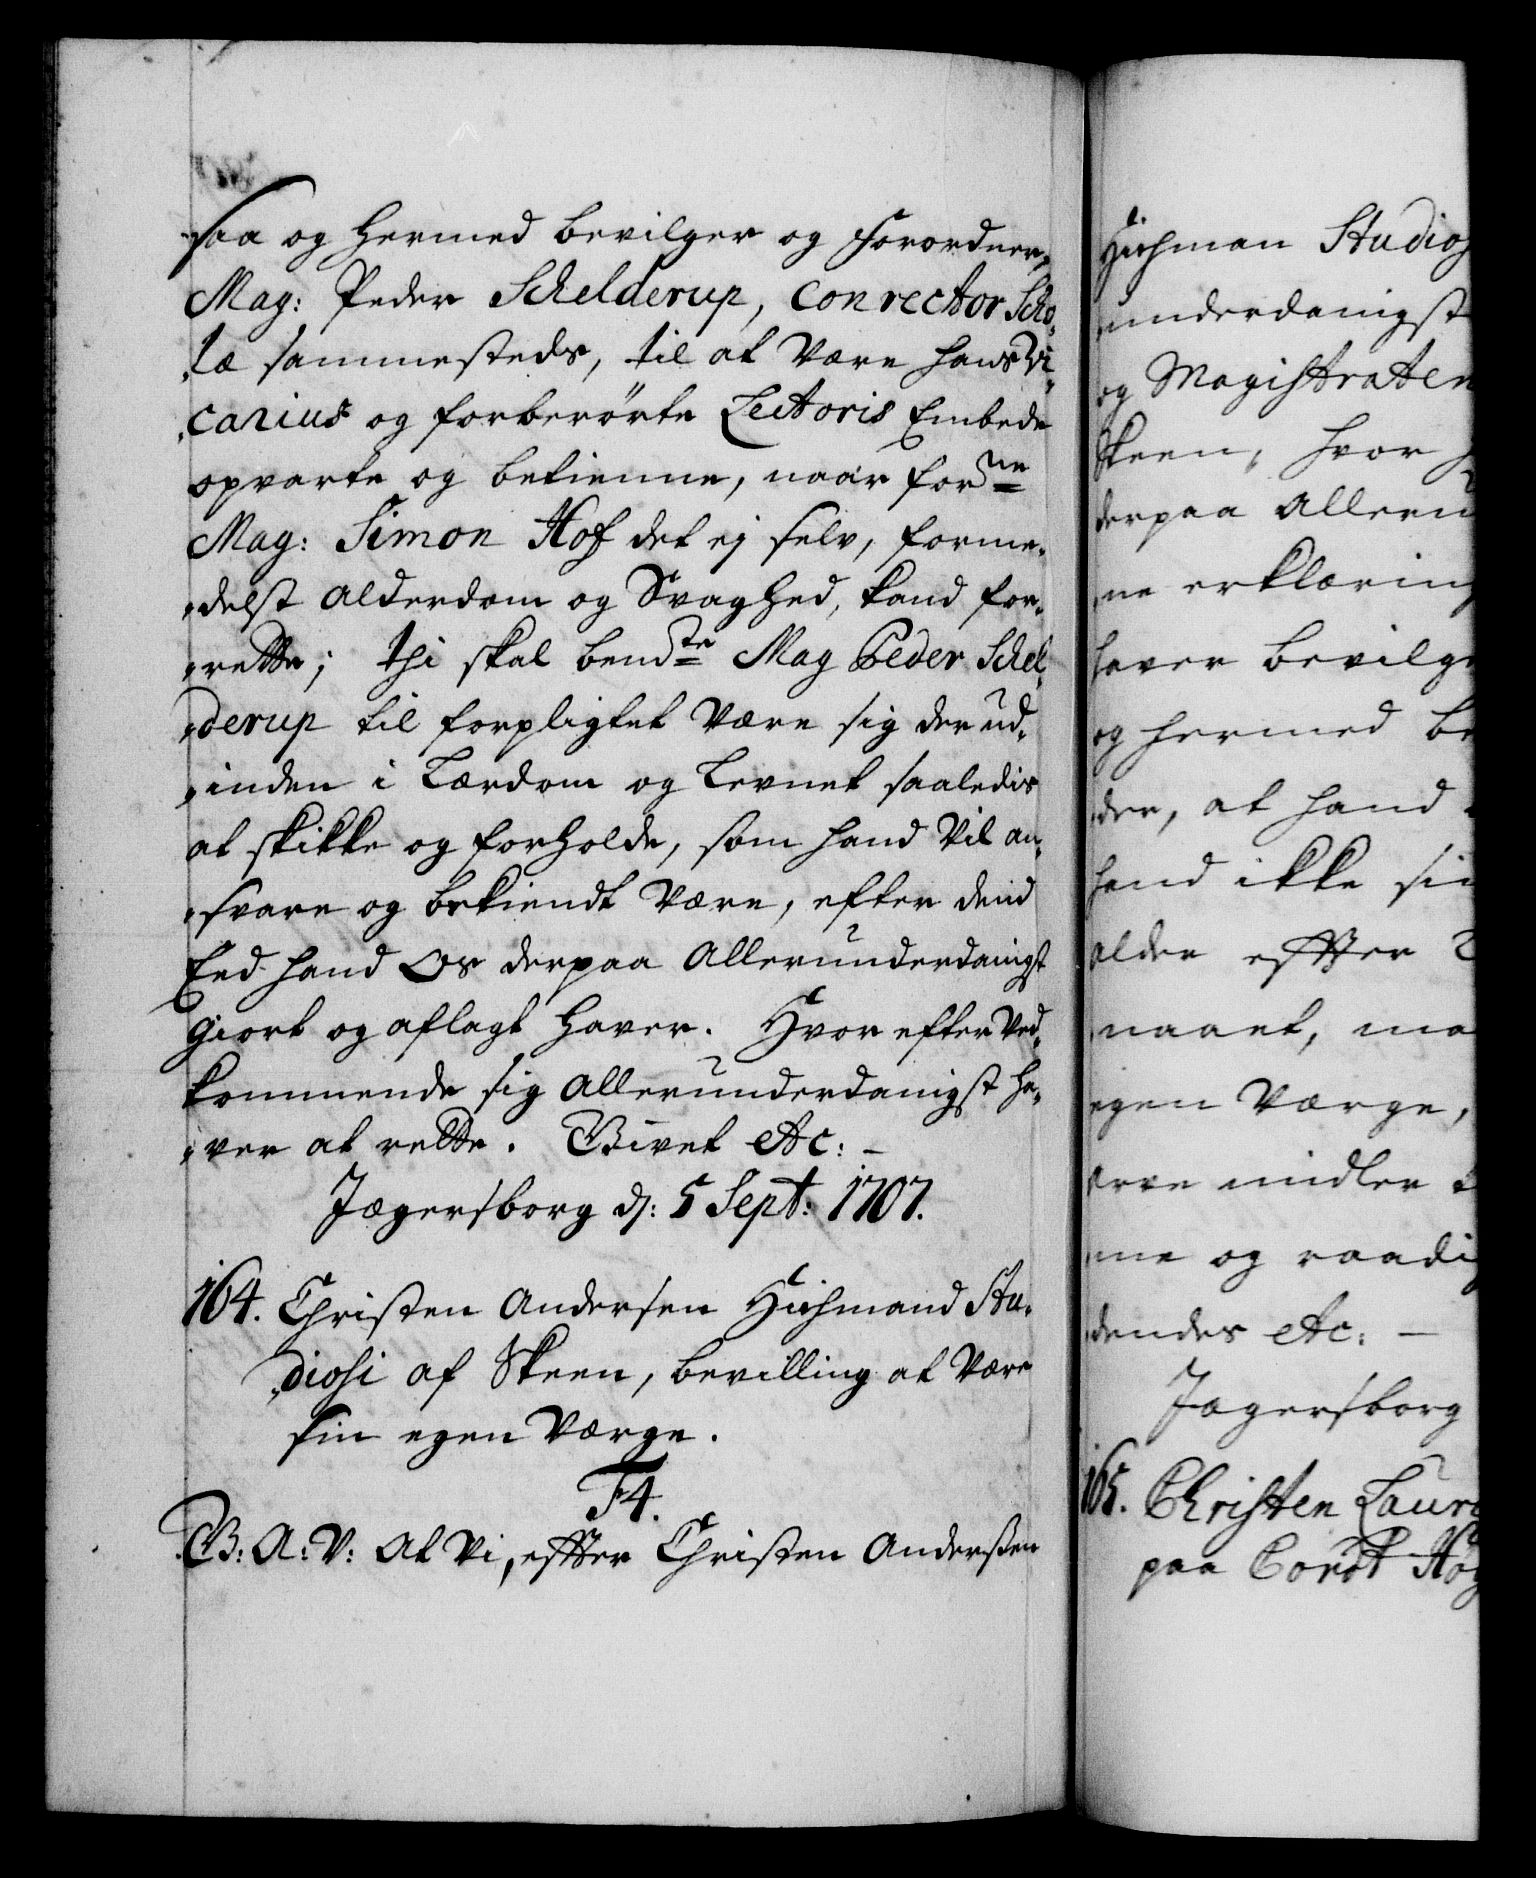 saa og hermed bevilger og forordner,
Mag: Peder Schelderup, Conrector Scho,
,læ sammesteds, til at være hans Vi,
,carius og forberørte Lectoris Embede
opvarte og betienne, naar forne
Mag: Simon Hof det ej selv, forme,
,delst Alderdom og Svaghed, kand for,
,rette; thi skal bemdte Mag Peder Schel,
,derup til forpligtet være sig derud,
,inden i Lærdom og Levnet saaledis
at skikke og forholde, som hand vil an,
,svare og bekiendt være, efter dend
Eed hand Os derpaa Allerunderdanigst
giort og aflagt haver. Hvorefter ved,
kommende sig allerunderdanigst ha,
,ver at rette. Givet etc: –
Jægersborg d: 5 Sept: 1707.
164. Christen Andersen Hichmand Stu,
,diosi af Skeen, bevilling at være
sin egen Værge.
F4.
G: A: V: At Vi, effter Christen Andersen
Hichman Studios
underdanigst
og Magistraten
Skeen, hvor
derpaa allerun
,ne erklæring
haver bevilg
og hermed be
der, at hand
hand ikke sin
alder effter
,naaet, ma
egen Værge,
arve midler
,ne og raadi
,dendes etc: –
Jægersborg
165. Christen Laur
paa Cordt Hö